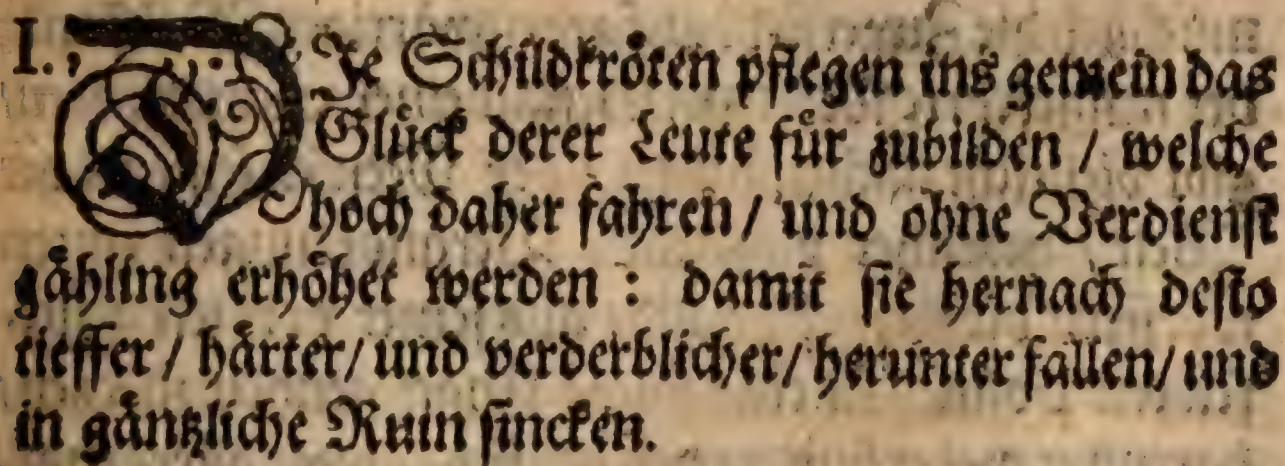 I. DJe Schildkröten pflegen ins gemein das
Glück derer Leute für zubilden / welche
hoch daher fahren / und ohne Verdienst
gähling erhöhet werden : damit sie hernach desto
tieffer / härter / und verderblicher / herunter fallen / und
in gäntzliche Ruin sincken.